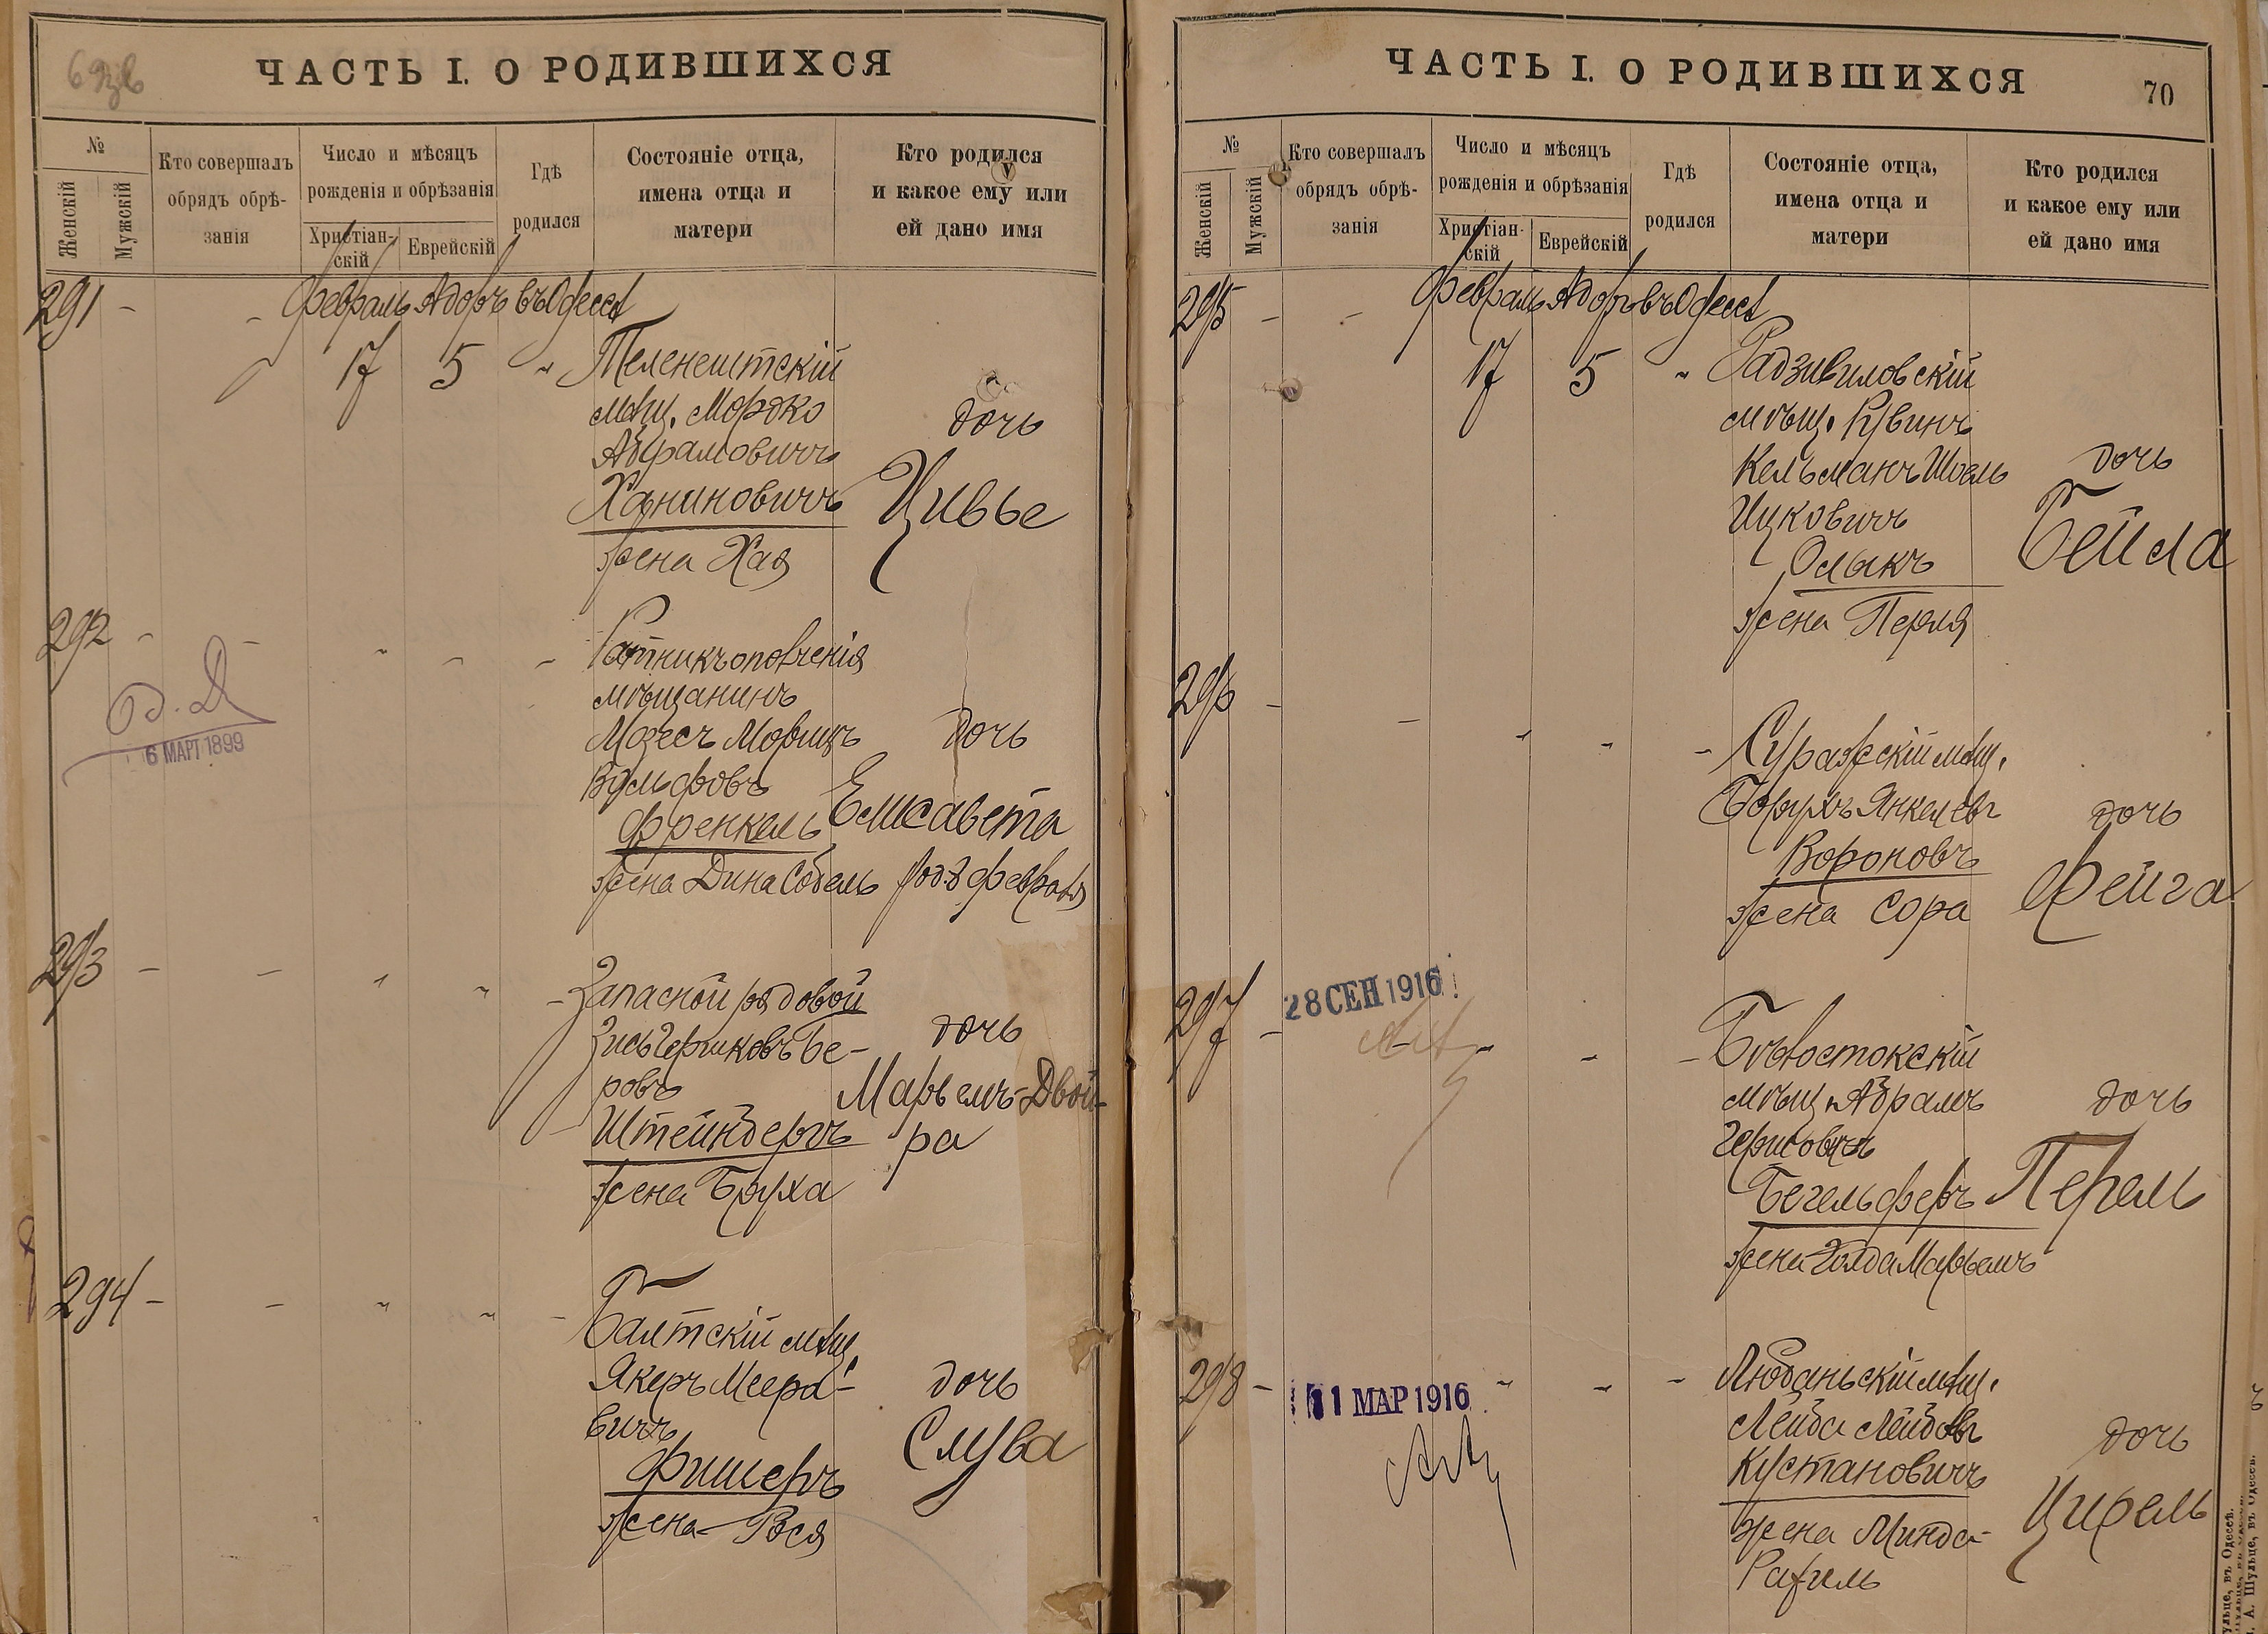 ЧАСТЬ I. О РОДИВШИХСЯ
№
Женскій
Мужскій
Кто совершалъ
обрядъ обрѣ-
занія
Число и мѣсяцъ
рожденія и обрѣзанія
Христіан-
скій
Еврейскій
Гдѣ
родился
Состояніе отца,
имена отца и
матери
Кто родился
и какое ему или
ей дано имя
291 - - Февраль Адаръ въ Одессѣ
17 5 " Теленештскій
мѣщ. Мордко
дочь
Абрамовичъ
Ханиновичъ Цивье
жена Хая
292 - - " - - Ратникъ ополченія
мѣщанинъ
Мозесъ Морицъ дочь
6 МАРТ 1899
Вульфовъ
Френкель Елисавета
жена Дина Собель род. 8 февраля
293 - - " " - Запасной рядовой
Зись Гершковъ Бе-
дочь
ровъ
Марьемъ-Двой-
Штейнбергъ ра
жена Бруха
294 - - " " - Балтскій мѣщ.
Якеръ Меера-
дочь
вичъ
Слува
Фишеръ
жена Рося
ЧАСТЬ I. О РОДИВШИХСЯ
70
№
Женскій
Мужскій
Кто совершалъ
обрядъ обрѣ-
занія
Число и мѣсяцъ
рожденія и обрѣзанія
Христіан-
скій
Еврейскій
Гдѣ
родился
Состояніе отца,
имена отца и
матери
Кто родился
и какое ему или
ей дано имя
295 - - Февраль Адаръ въ Одессѣ
17 5 " Радзивиловскій
мѣщ. Рувинъ
Кельманъ Шоель дочь
Ицковичъ
Бейла
Олыкъ
жена Перля
296 - - " " - Суражскій мѣщ.
Борухъ Янкелевъ дочь
Вороновъ
Фейга
жена Сора
297 - 28 СЕН 1916 - - - Бѣлостокскій
мѣщ. Абрамъ дочь
Гершовичъ
Бегельферъ Перель
жена Голда Марьемъ
298 - 11 МАР 1916 " - - Любаньскій мѣщ.
Лейба Лейбовъ дочь
Кустановичъ
Цирель
жена Минда-
Рахиль